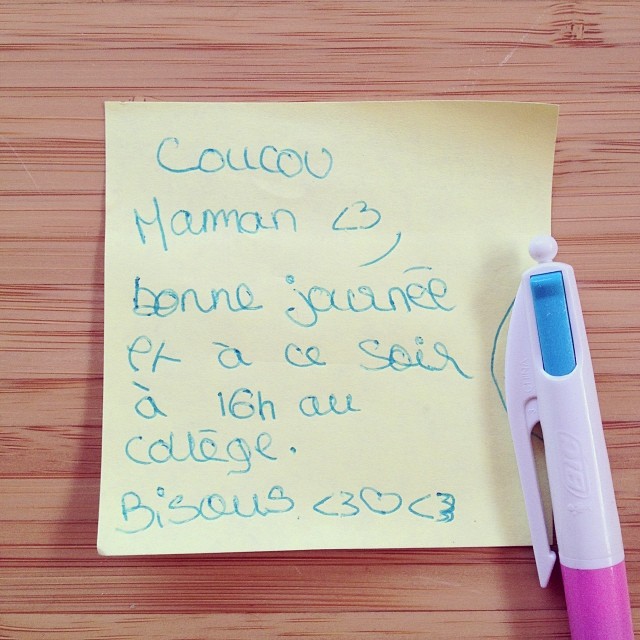 Coucou
Maman <3,
bonne journée
et à ce soir
à 16h au
collège.
Bisous <3♡<3
BIC